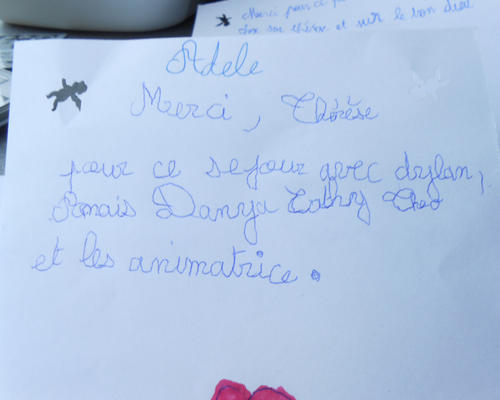 Merci pour c
et sur le bon dieu
Adele
Merci, Thérèse
pour ce sejour avec dylan,
Danya Cathy Theo
et les animatrice.